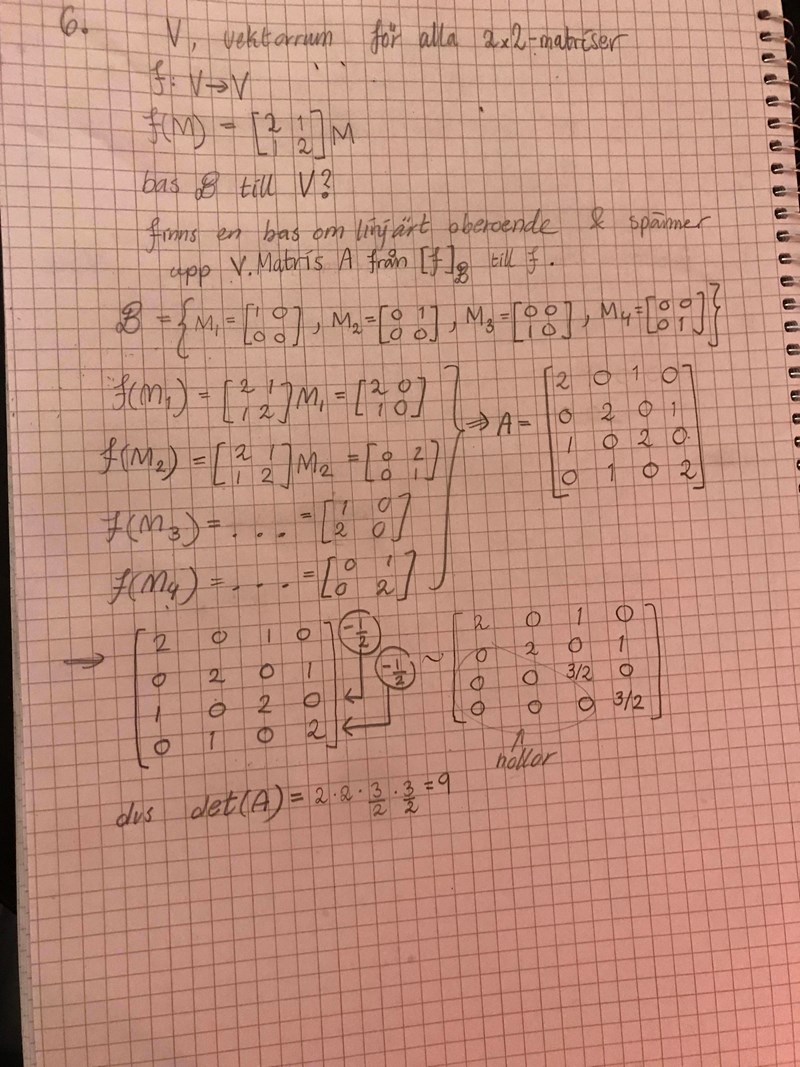 6. V, vektorrum för alla 2x2-matriser
f: V→V
f(M) = [2 1; 1 2]M
bas B till V?
finns en bas om linjärt oberoende & spänner
upp V. Matris A från [f]_B till f.
B = {M₁=[1 0; 0 0], M₂=[0 1; 0 0], M₃=[0 0; 1 0], M₄=[0 0; 0 1]}
f(M₁) = [2 1; 1 2]M₁ = [2 0; 1 0]
f(M₂) = [2 1; 1 2]M₂ = [0 2; 0 1]
f(M₃) = . . . = [1 0; 2 0]
f(M₄) = . . . = [0 1; 0 2]
⇒ A = [2 0 1 0; 0 2 0 1; 1 0 2 0; 0 1 0 2]
→ [2 0 1 0; 0 2 0 1; 1 0 2 0; 0 1 0 2] -1/2 -1/2 ~ [2 0 1 0; 0 2 0 1; 0 0 3/2 0; 0 0 0 3/2]
nollor
dvs det(A) = 2·2·3/2·3/2 = 9